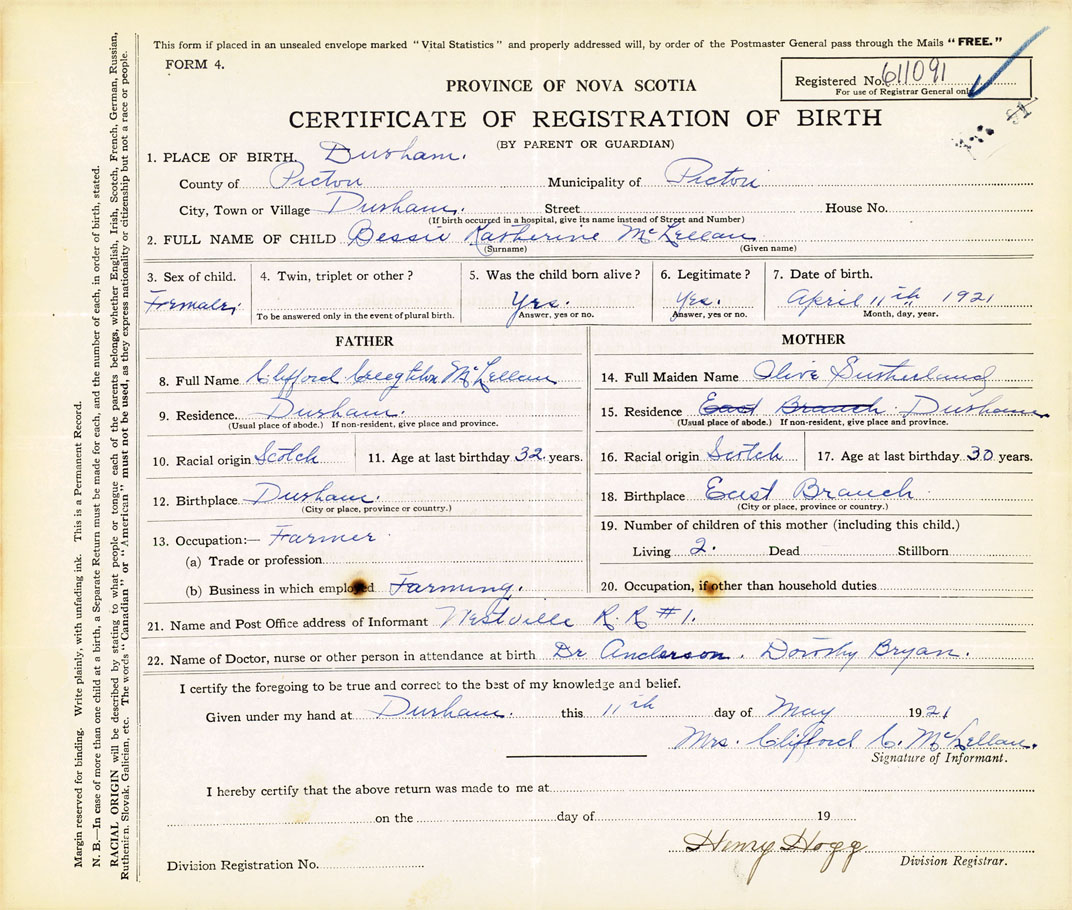 This form if placed in an unsealed envelope marked "Vital Statistics" and properly addressed will, by order of the Postmaster General pass through the Mails "FREE."
FORM 4.
Registered No. 611091
For use of Registrar General only
PROVINCE OF NOVA SCOTIA
CERTIFICATE OF REGISTRATION OF BIRTH
(BY PARENT OR GUARDIAN)
1. PLACE OF BIRTH. Durham.
County of Pictou Municipality of Pictou
City, Town or Village Durham. Street House No.
(If birth occurred in a hospital, give its name instead of Street and Number)
2. FULL NAME OF CHILD Bessie Katherine McLellan
(Surname) (Given name)
3. Sex of child. 4. Twin, triplet or other? 5. Was the child born alive? 6. Legitimate? 7. Date of birth.
Female. Yes. Yes. April 11th 1921
To be answered only in the event of plural birth. Answer, yes or no. Answer, yes or no. Month, day, year.
FATHER
8. Full Name Clifford Creeghton McLellan
9. Residence. Durham.
(Usual place of abode.) If non-resident, give place and province.
10. Racial origin Scotch 11. Age at last birthday 32 years.
12. Birthplace Durham.
(City or place, province or country.)
13. Occupation:— Farmer
(a) Trade or profession
(b) Business in which employed Farming.
MOTHER
14. Full Maiden Name Olive Sutherland
15. Residence East Branch Durham
(Usual place of abode.) If non-resident, give place and province.
16. Racial origin Scotch 17. Age at last birthday 30 years.
18. Birthplace East Branch
(City or place, province or country.)
19. Number of children of this mother (including this child.)
Living 2. Dead Stillborn
20. Occupation, if other than household duties
21. Name and Post Office address of Informant Westville R. R #1.
22. Name of Doctor, nurse or other person in attendance at birth Dr Anderson. Dorothy Bryan.
I certify the foregoing to be true and correct to the best of my knowledge and belief.
Given under my hand at Durham. this 11th day of May 1921
Mrs. Clifford C. McLellan.
Signature of Informant.
I hereby certify that the above return was made to me at
on the day of 19
Henry Hogg
Division Registrar.
Division Registration No.
Margin reserved for binding. Write plainly, with unfading ink. This is a Permanent Record.
N. B.—In case of more than one child at a birth, a Separate Return must be made for each, and the number of each, in order of birth, stated.
RACIAL ORIGIN will be described by stating to what people or tongue each of the parents belongs, whether English, Irish, Scotch, French, German, Russian,
Ruthenian, Slovak, Galician, etc. The words "Canadian" or "American" must not be used, as they express nationality or citizenship but not a race or people.